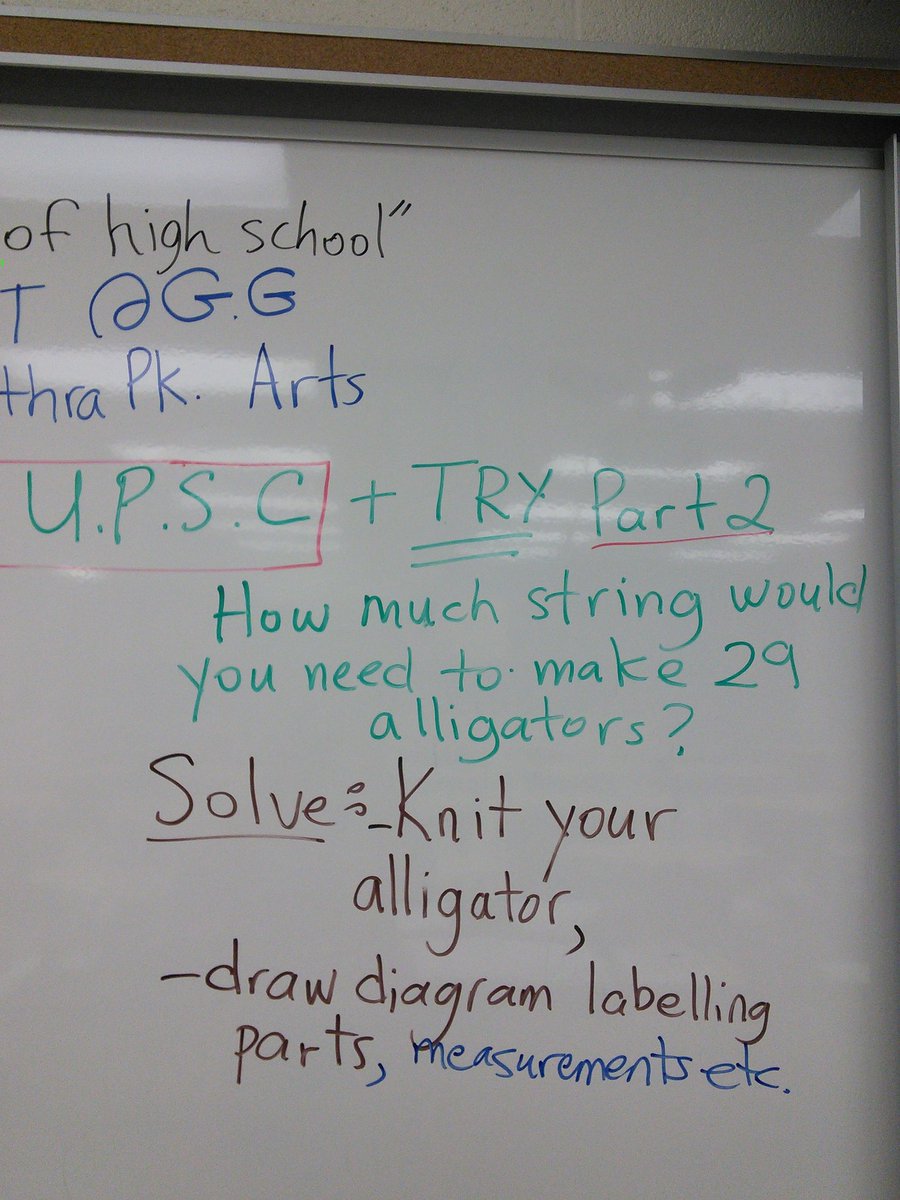 of high school"
T @G.G
thra Pk. Arts
U.P.S.C + TRY Part 2
How much string would
you need to make 29
alligators?
Solve: - Knit your
alligator,
- draw diagram labelling
parts, measurements etc.